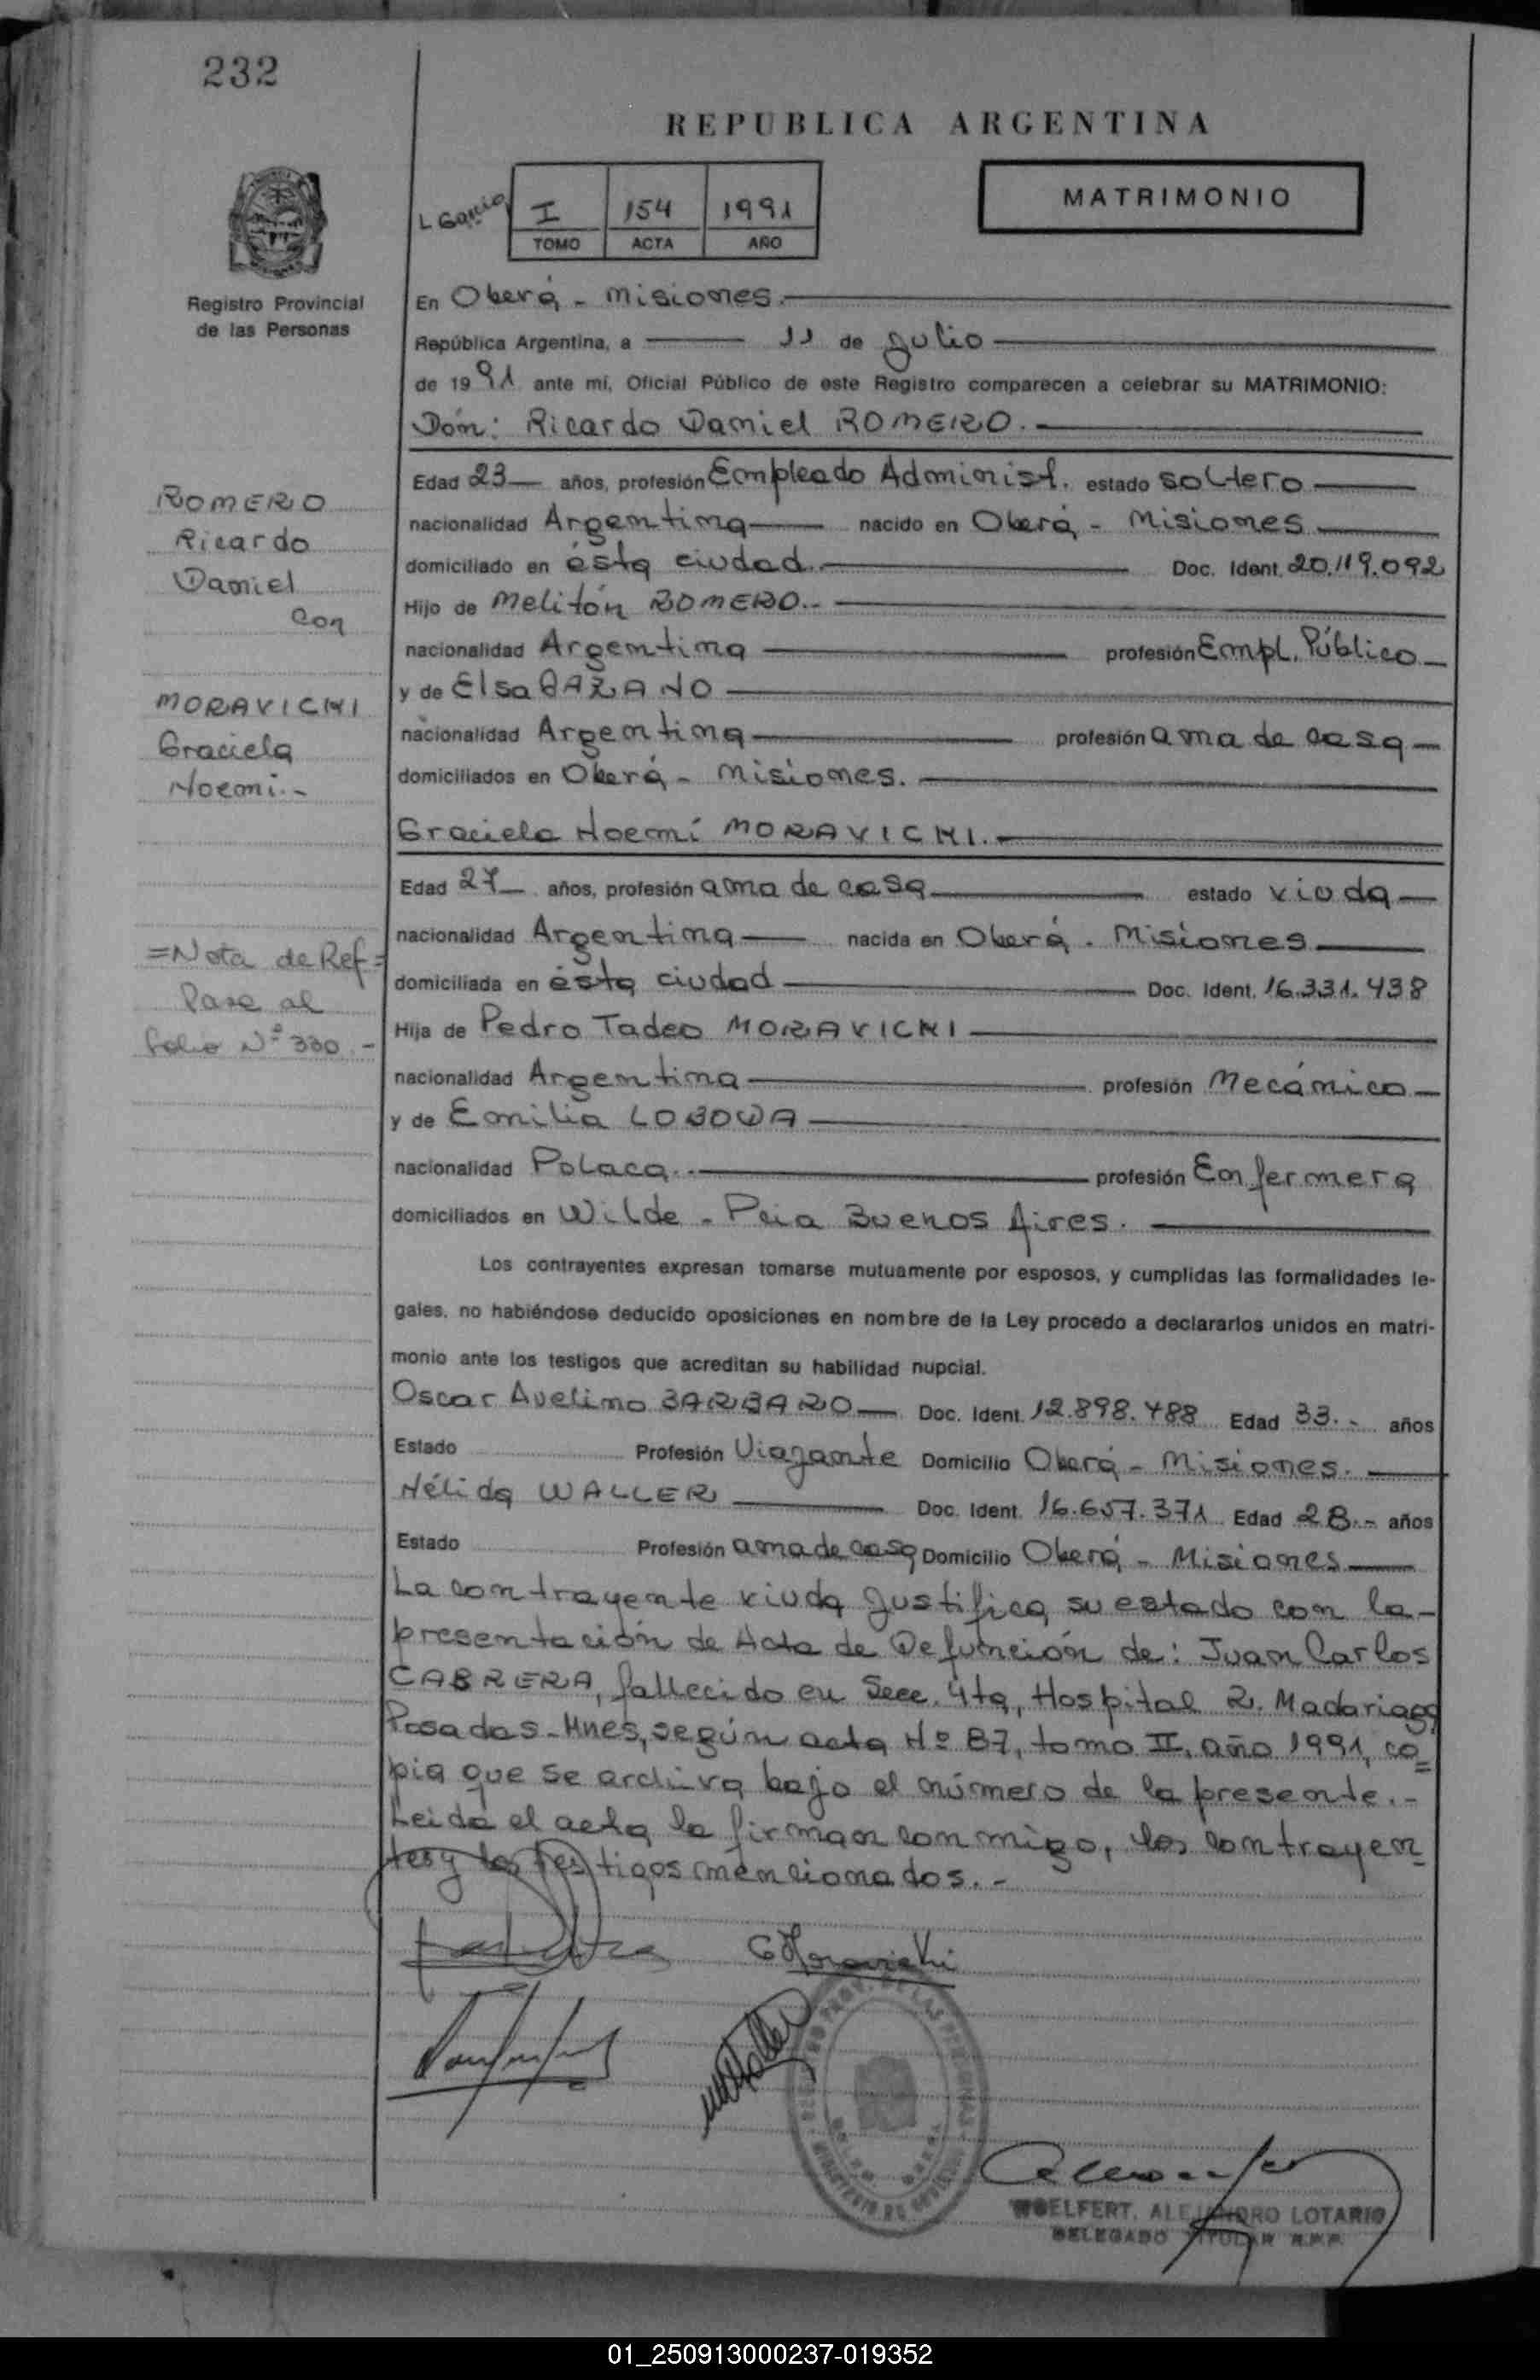 232
REPUBLICA ARGENTINA
MATRIMONIO
I 154 1991
TOMO ACTA AÑO
Registro Provincial
de las Personas
En Oberá - Misiones.
República Argentina, a 11 de Julio
de 1991 ante mí, Oficial Público de este Registro comparecen a celebrar su MATRIMONIO:
Don: Ricardo Daniel ROMERO.
Edad 23 años, profesión Empleado Administ. estado soltero
nacionalidad Argentina nacido en Oberá - Misiones
domiciliado en ésta ciudad. Doc. Ident. 20.119.092
Hijo de Melitón ROMERO.-
nacionalidad Argentina profesión Empl. Público
y de Elsa
nacionalidad Argentina profesión ama de casa
domiciliados en Oberá - Misiones.
ROMERO
Ricardo
Daniel
con
MORAVICKI
Graciela
Noemi.-
Graciela Noemí MORAVICKI.
Edad 27 años, profesión ama de casa estado viuda
nacionalidad Argentina nacida en Oberá. Misiones
domiciliada en ésta ciudad Doc. Ident. 16.331.438
Hija de Pedro Tadeo MORAVICKI
nacionalidad Argentina profesión Mecánico
y de Emilia LOBODA
nacionalidad Polaca.- profesión Enfermera
domiciliados en Wilde - Pcia Buenos Aires.
=Nota de Ref=
Pase al
folio Nº 330.-
Los contrayentes expresan tomarse mutuamente por esposos, y cumplidas las formalidades le-
gales, no habiéndose deducido oposiciones en nombre de la Ley procedo a declararlos unidos en matri-
monio ante los testigos que acreditan su habilidad nupcial.
Oscar Avelino BARBARO Doc. Ident. 12.898.488 Edad 33.- años
Estado Profesión Viajante Domicilio Oberá - Misiones.
Nélida WALLER Doc. Ident. 16.657.371 Edad 28.- años
Estado Profesión ama de casa Domicilio Oberá - Misiones
La contrayente viuda justifica su estado con la-
presentación de Acta de Defunción de: Juan Carlos
CABRERA, fallecido en Secc. 4ta, Hospital R. Madariaga
Posadas-Mnes, según acta Nº 87, tomo II, año 1991, co=
pia que se archiva bajo el número de la presente.-
Leida el acta, la firman conmigo, los contrayen-
tes y los testigos mencionados.-
G Moravicki
WOELFERT, ALEJANDRO LOTARIO
DELEGADO TITULAR R.P.P.
01_250913000237-019352